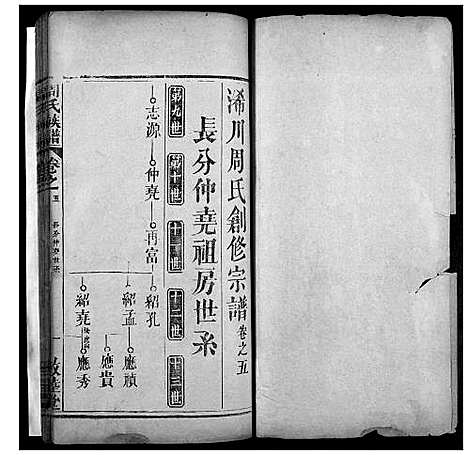 浠川周氏創修宗譜 卷之五
長分仲堯祖房世系
第九世 第十世 十一世 十二世 十三世
志源 仲堯 再富 紹孔
紹孟 應禎
應貴
紹堯 應秀
周氏族譜 卷之五 長分仲堯世系 一